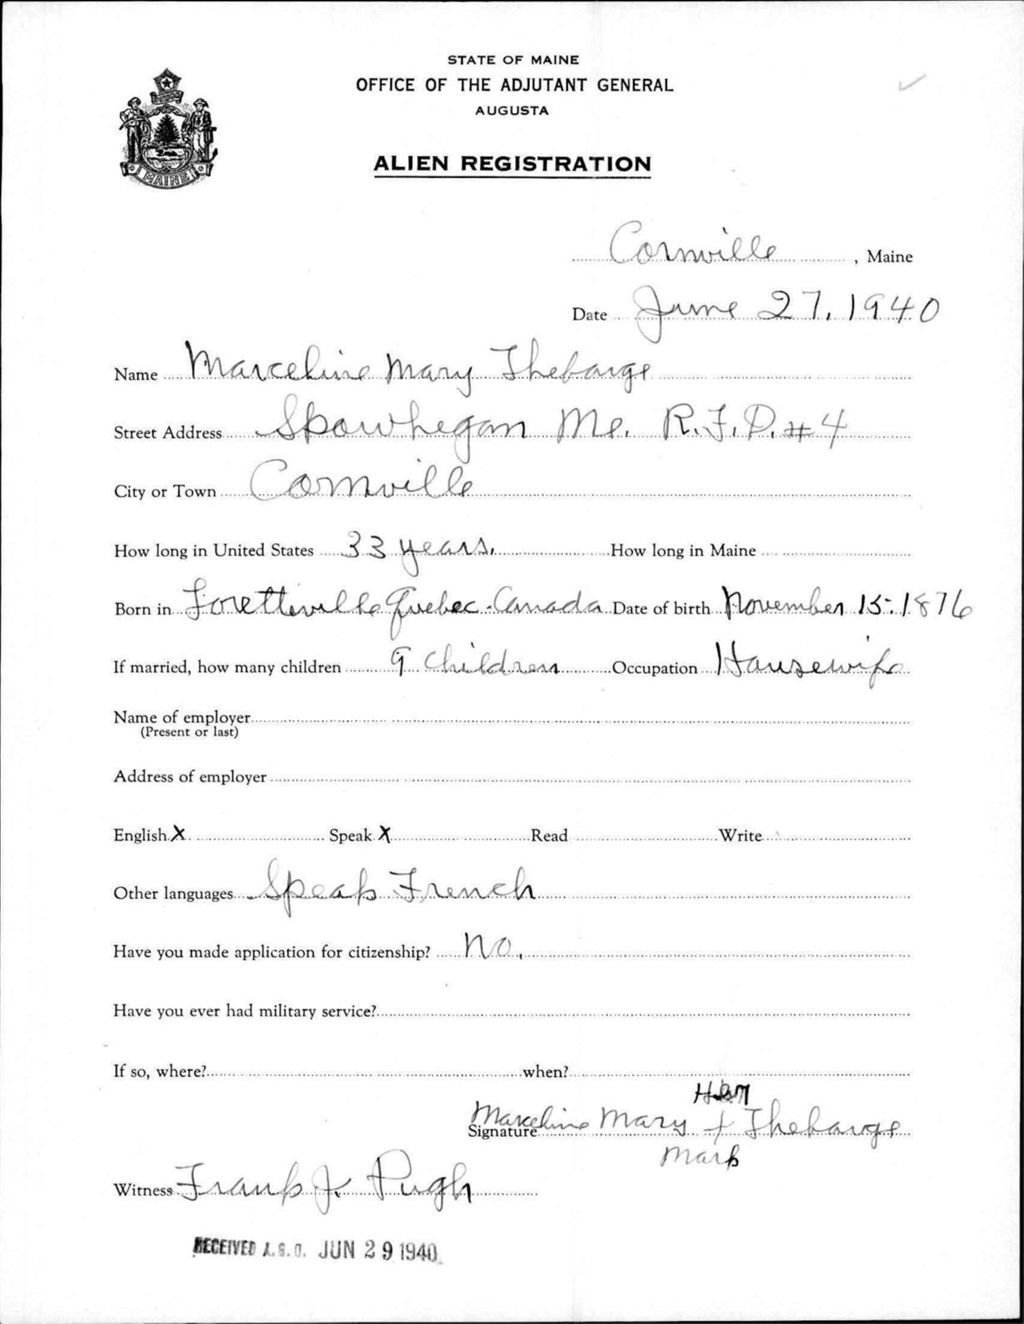 STATE OF MAINE
OFFICE OF THE ADJUTANT GENERAL
AUGUSTA
ALIEN REGISTRATION
MAINE
Cornville, Maine
Date June 27, 1940
Name Marceline Mary Thebarge
Street Address Skowhegan Me. R.F.D. #4
City or Town Cornville
How long in United States 33 years. How long in Maine
Born in Loretteville Quebec - Canada Date of birth November 15-1876
If married, how many children 9 Children Occupation Housewife
Name of employer
(Present or last)
Address of employer
English X Speak X Read Write
Other languages Speak French
Have you made application for citizenship? No.
Have you ever had military service?
If so, where? when?
Her
Signature Marceline Mary + Thebarge
Mark
Witness Frank J. Pugh
RECEIVED A.G.O. JUN 29 1940